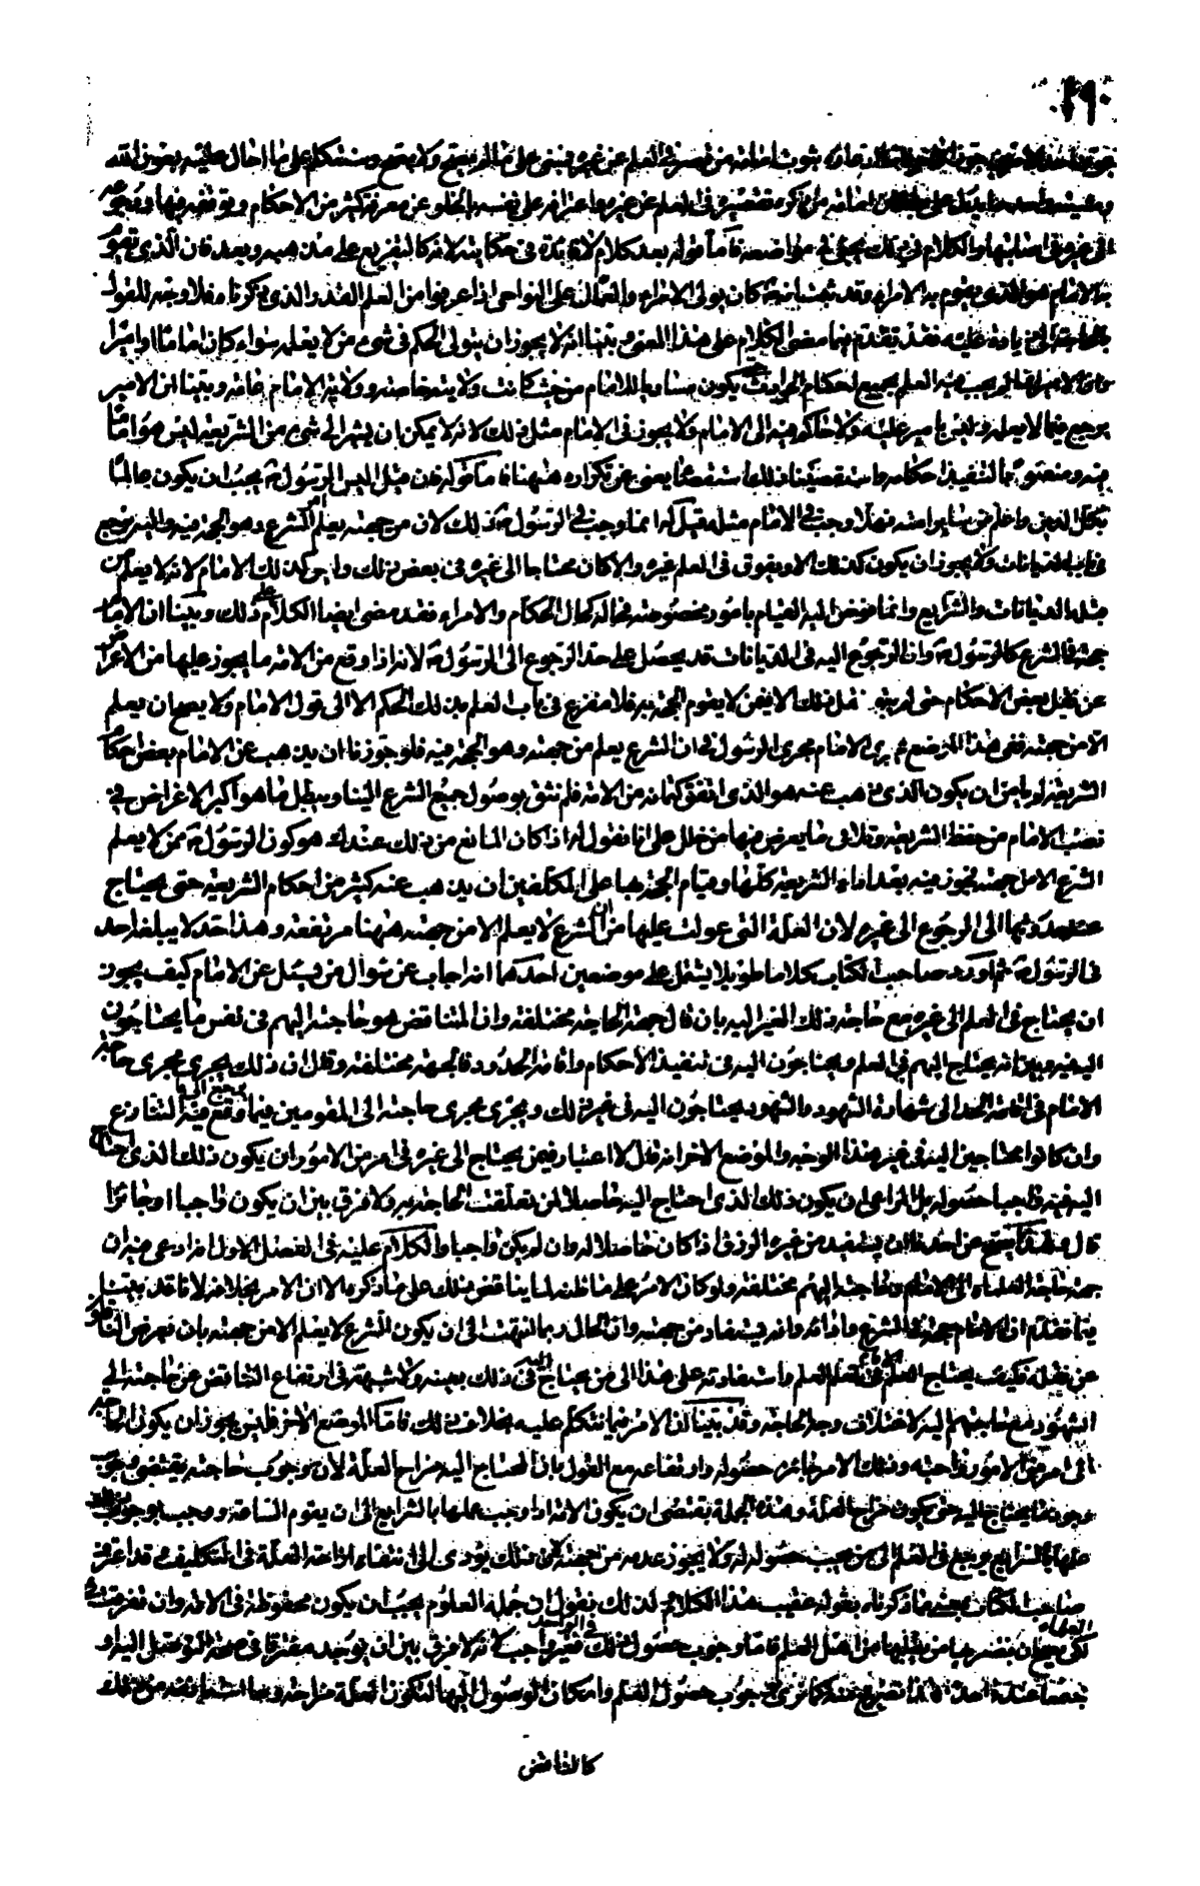 ثبوت امامته من قصر في العلم عن غيره فيبنى على ما لم يصح ولا يصح وسنتكلم على ما احال عليه بعون الله
من ذكره تقصيره في العلم عن غيره واعترافه على نفسه بالخلو عن معرفة كثير من الاحكام وتوقفه فيها
والكلام في ذلك يجيء في مواضعه فاما قوله بعد كلام لا فايدة في حكايته لانه كالتفريع على مذهبه وبعد فان الذي
الامام هو الذي يقوم به الامراء وقد ثبت انه كان يولى الامراء والعمال على النواحي اذا عرفوا من العلم القدر الذي ذكرناه فلا وجه للقول
بالحاجة الى زيادة عليه فقد تقدم فيما مضى الكلام على هذا المعنى وبينا انه لا يجوز ان يتولى الحكم في شيء من لا يعلمه سواء كان اماما او اميرا
وان الامير انما لم يجب فيه العلم بجميع احكام الحوادث يكون مساويا للامام من حيث كانت ولايته خاصة وولاية الامام عامة وبينا ان الامير
يرجع فيما لا يعلمه وليس بامير عليه ولا حاكم فيه الى الامام ولا يجوز في الامام مثل ذلك لانه لا يمكن ان يشير الى شيء من الشريعة ليس هو اماما
فيه ومنصوبا لتنفيذ احكامه واستقصينا ذلك استقصاء يغني عن تكراره هيهنا فاما قوله فان قيل اليس الرسول يجب ان يكون عالما
بكل الدين واعلم من ساير امته فهلا وجب في الامام مثله قيل له انما وجب في الرسول ذلك لان من جهته يعلم الشرع وهو الحجة فيه واليه يرجع
في باب الديانات ولا يجوز ان يكون كذلك الا ويفوق في العلم غيره والا كان محتاجا الى غيره في بعض ذلك وليس كذلك الامام لانه لا يعلم من
قبله الديانات والشرايع وانما فوض اليه القيام بامور مخصوصة فحاله كحال الحكام والامراء فقد مضى ايضا الكلام على ذلك وبينا ان الامام
حجة في الشرع كالرسول وان الرجوع اليه في الديانات قد يحصل على حد الرجوع الى الرسول لانه اذا وقع من الامة ما يجوز عليها من الاعراض
عن نقل بعض الاحكام حتى لم يبق نقل ذلك الا فيمن لا يقوم الحجة به فلا مفزع في باب العلم بذلك الحكم الا الى قول الامام ولا يصح ان يعلم
الا من جهته ففي هذا الموضع يجرى الامام مجرى الرسول في ان الشرع يعلم من جهته وهو الحجة فيه فلو جوزنا ان يذهب عن الامام بعض احكام
الشريعة لم نامن ان يكون الذي ذهب عنه هو الذي اتفق كتمانه من الامة فلم نثق بوصول جميع الشرع الينا ويبطل ما هو اكبر الاغراض في
نصب الامام من حفظ الشريعة وتلافي ما يعرض فيها من خلل على انا نقول له اذا كان المانع من ذلك عندك هو كون الرسول ممن لا يعلم
الشرع الا من جهته فجوز فيه بعد اداء الشريعة كلها وقيام الحجة بها على المكلفين ان يذهب عنه كثير من احكام الشريعة حتى يحتاج
الى الرجوع الى غيره لان العلة التي عولت عليها من ان الشرع لا يعلم الا من جهته هيهنا مرتفعة وهذا حد لا يبلغه احد
في الرسول ثم اورد صاحب الكتاب كلاما طويلا يشتمل على موضعين احدهما انه اجاب عن سؤال من يسئل عن الامام كيف يجوز
ان يحتاج في العلم الى غيره مع حاجة ذلك الغير اليه بان قال جهة الحاجة مختلفة وان المتناقض هو حاجته اليهم في نفس ما يحتاجون
اليه فيه وبين انه يحتاج اليهم في العلم ويحتاجون اليه في تنفيذ الاحكام واقامة الحدود فالجهة مختلفة وقال ان ذلك يجرى مجرى حاجة
الامام في اقامة الحد الى شهادة الشهود والشهود يحتاجون اليه في غير ذلك ويجرى مجرى حاجته الى المقومين فيما يرجع اليه وقع فيه التنازع
وان كانوا محتاجين اليه في غير هذا الوجه والموضع الاخر انه قال لا اعتبار فيمن يحتاج الى غيره في امر من الامور ان يكون ذلك الذي احتاج
اليه فيه واجبا حصوله بل المراعى ان يكون ذلك الذي احتاج اليه حاصلا لمن تعلقت الحاجة به ولا فرق بين ان يكون واجبا او جائزا
قال يصح من احدنا ان يستفيد من غيره الرزق اذا كان حاصلا له وان لم يكن واجبا والكلام عليه في الفصل الاول انه ادعى فيه ان
جهة حاجة العلماء الى الامام وحاجته اليهم مختلفة ولو كان الامر على ما ظنه لما يتناقض ذلك على ما ذكره الا ان الامر بخلافه لانا قد بينا
فيما تقدم ان الامام حجة في الشرع وادائه وانه يستفاد من جهته وان الحال ربما انتهت الى ان يكون الشرع لا يعلم الا من جهته بان يعرض الناقلون
عن نقله فكيف يحتاج الامام في العلم واستفادته على هذا الى من يحتاج اليه في ذلك بعينه ولا شبهة في ارتفاع التناقض عن حاجته الى
الشهود مع حاجتهم اليه لاختلاف وجه الحاجة وقد بينا ان الامر فيما نتكلم عليه بخلاف ذلك فاما الموضع الاخر فليس يجوز ان يكون الحاجة
الى امر من الامور واجبة وذلك الامر جائز حصوله وارتفاعه مع القول بان المحتاج اليه مزاح العلة لان وجوب حاجته يقتضى وجوب
وجود ما يحتاج اليه حتى يكون مزاح العلة وهذه الجملة يقتضى ان يكون الامة اذا وجب عملها بالشرايع الى ان يقوم الساعة ووجب لوجوب
علمها بالشرايع ويرجع في العلم الى من يجب حصوله له ولا يجوز عدمه من جهته لان ذلك يؤدى الى انتفاء ازاحة العلة في التكليف وقد اعترف
صاحب الكتاب بمعنى ما ذكرناه بقوله عقيب هذا الكلام ولذلك نقول ان جملة العلوم يجب ان يكون محفوظة في الامة وان تفرقت في العلماء
لكى يصح ان يصير اليها من يطلبها من اهل العلم فاما وجوب حصول ذلك في الواحد فغير واجب لانه لا فرق بين ان يوجد مفترقا في صحة التوصل اليه او
مجتمعا عند واحد فهذا تصريح منه كما ترى بوجوب حصول العلم وامكان الوصول اليها لتكون العلة مزاحة وما استفدته من ذلك
كالناقض